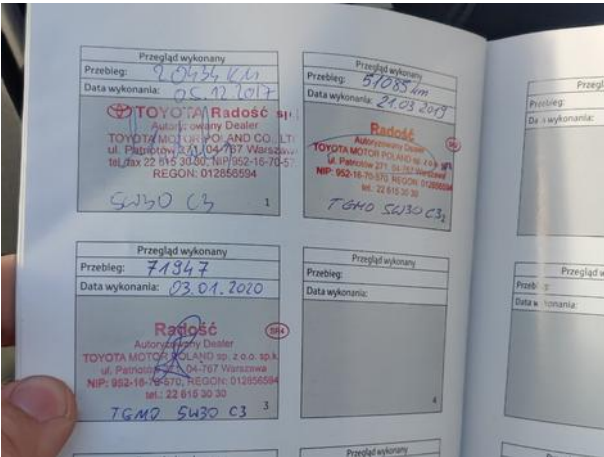 Przegląd wykonany
Przebieg: 20434 KM
Data wykonania: 05.12.2017
TOYOTA Radość
Autoryzowany Dealer
TOYOTA MOTOR POLAND CO. LT
ul. Patriotów 271, 04-767 Warszawa
tel./fax 22 615 30 30, NIP 952-16-70-57
REGON: 012856594
5W30 C3
1
Przegląd wykonany
Przebieg: 51085 km
Data wykonania: 21.03 2019
Radość
Autoryzowany Dealer
TOYOTA MOTOR POLAND sp. z o.o. sp.k.
ul. Patriotów 271, 04-767 Warszawa
NIP: 952-16-70-570, REGON: 012856594
tel.: 22 615 30 30
TGMO 5W30 C3
2
Przegląd wykonany
Przebieg: 71947
Data wykonania: 03.01.2020
Radość
SR4
Autoryzowany Dealer
TOYOTA MOTOR POLAND sp. z o.o. sp.k.
ul. Patriotów 271, 04-767 Warszawa
NIP: 952-16-70-570, REGON: 012856594
tel.: 22 615 30 30
TGMO 5W30 C3
3
Przegląd wykonany
Przebieg:
Data wykonania:
4
Przebieg:
Przegląd
Data wykonania:
Przegląd wykonany